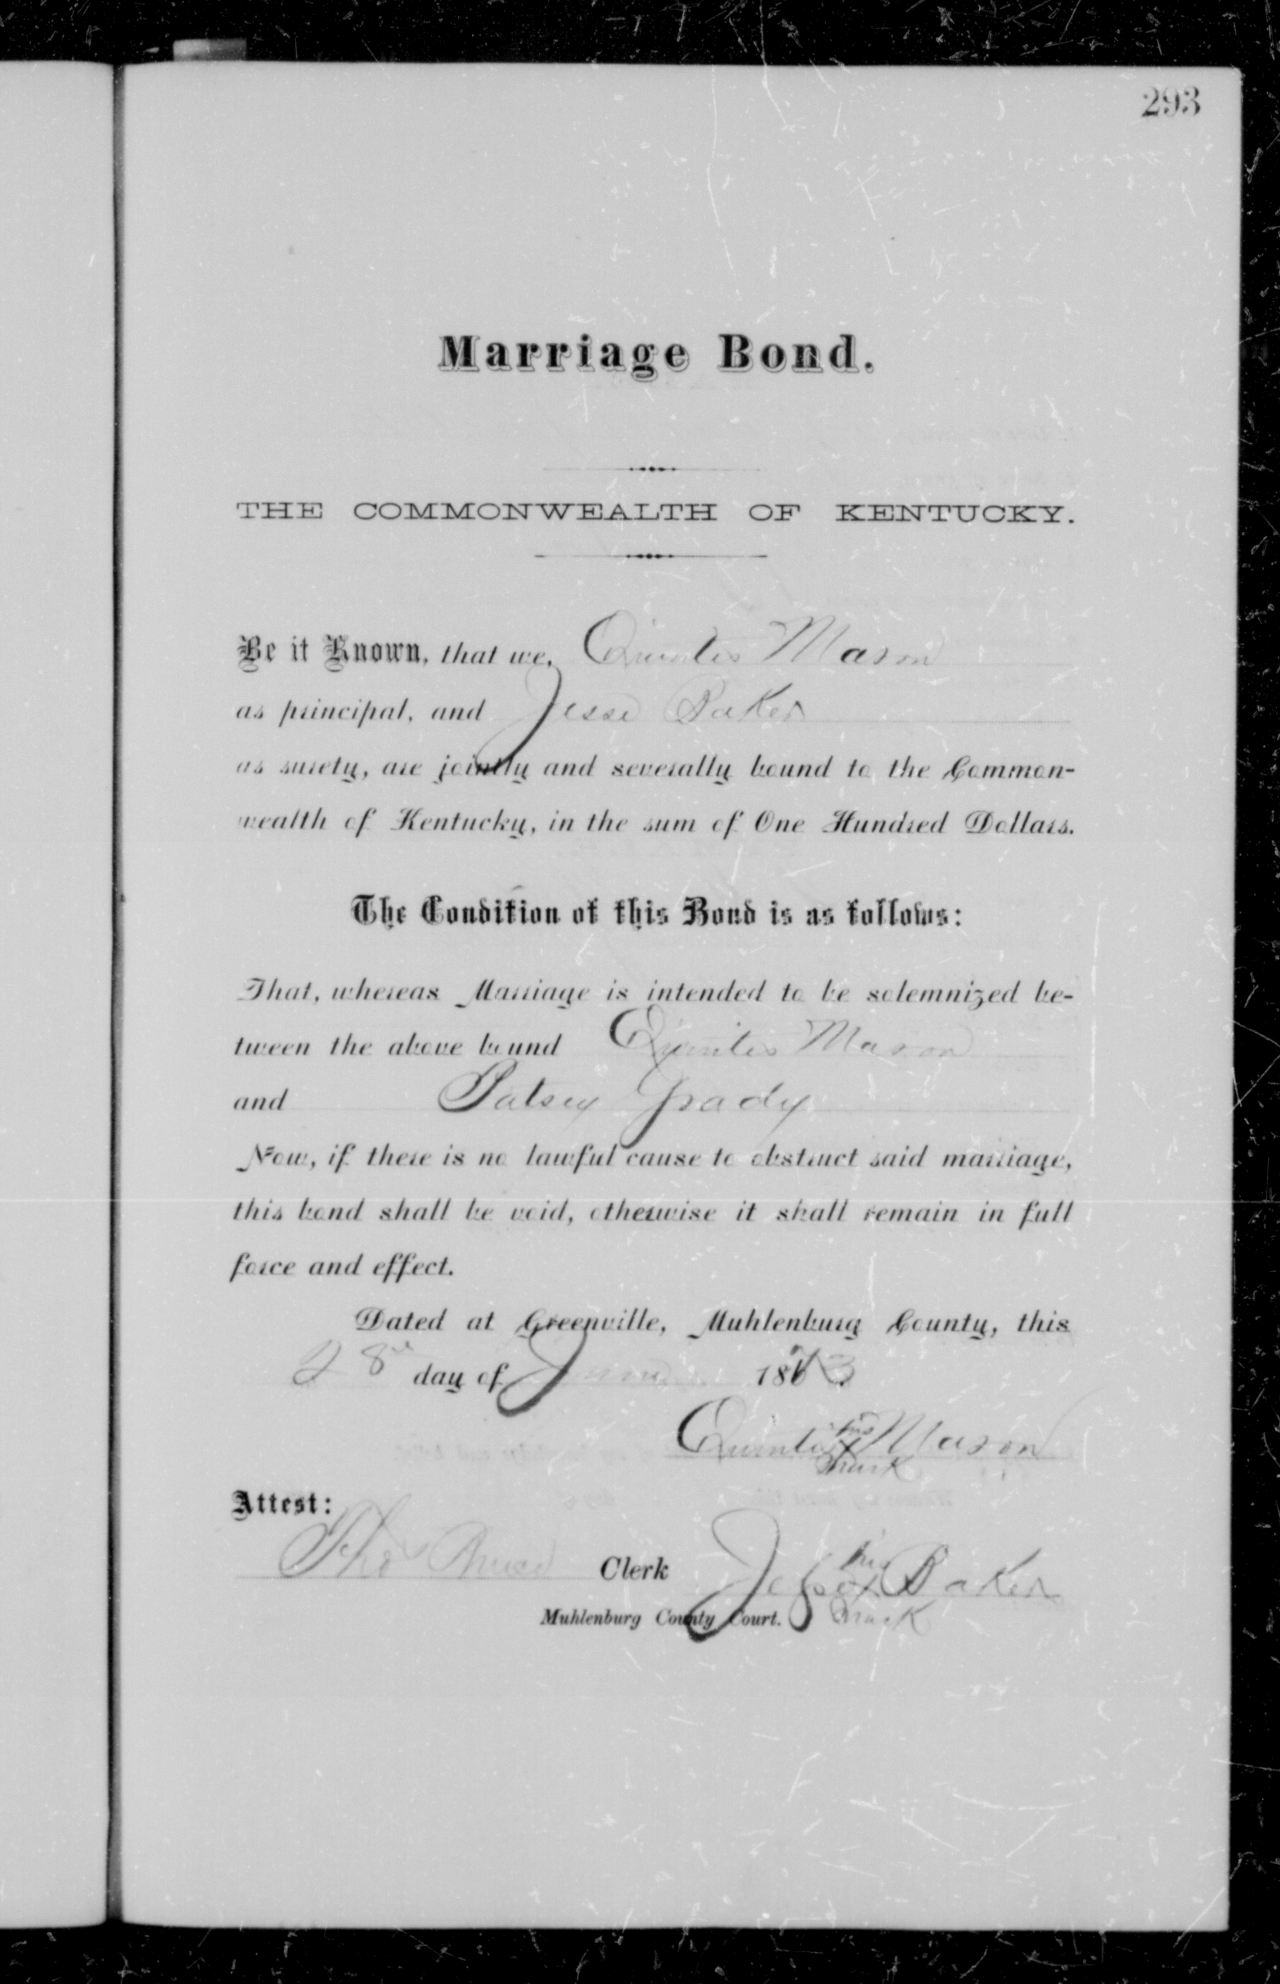 293
Marriage Bond.
THE COMMONWEALTH OF KENTUCKY.
Be it Known, that we, Quinter Mason
as principal, and Jesse Baker
as surety, are jointly and severally bound to the Common-
wealth of Kentucky, in the sum of One Hundred Dollars.
The Condition of this Bond is as follows:
That, whereas Marriage is intended to be solemnized be-
tween the above bound Quinter Mason
and Patsey Grady
Now, if there is no lawful cause to obstruct said marriage,
this bond shall be void, otherwise it shall remain in full
force and effect.
Dated at Greenville, Muhlenburg County, this
28 day of June 1873
his
Quinter X Mason
mark
Attest:
Tho Clerk
his
Jesse X Baker
Muhlenburg County Court. mark